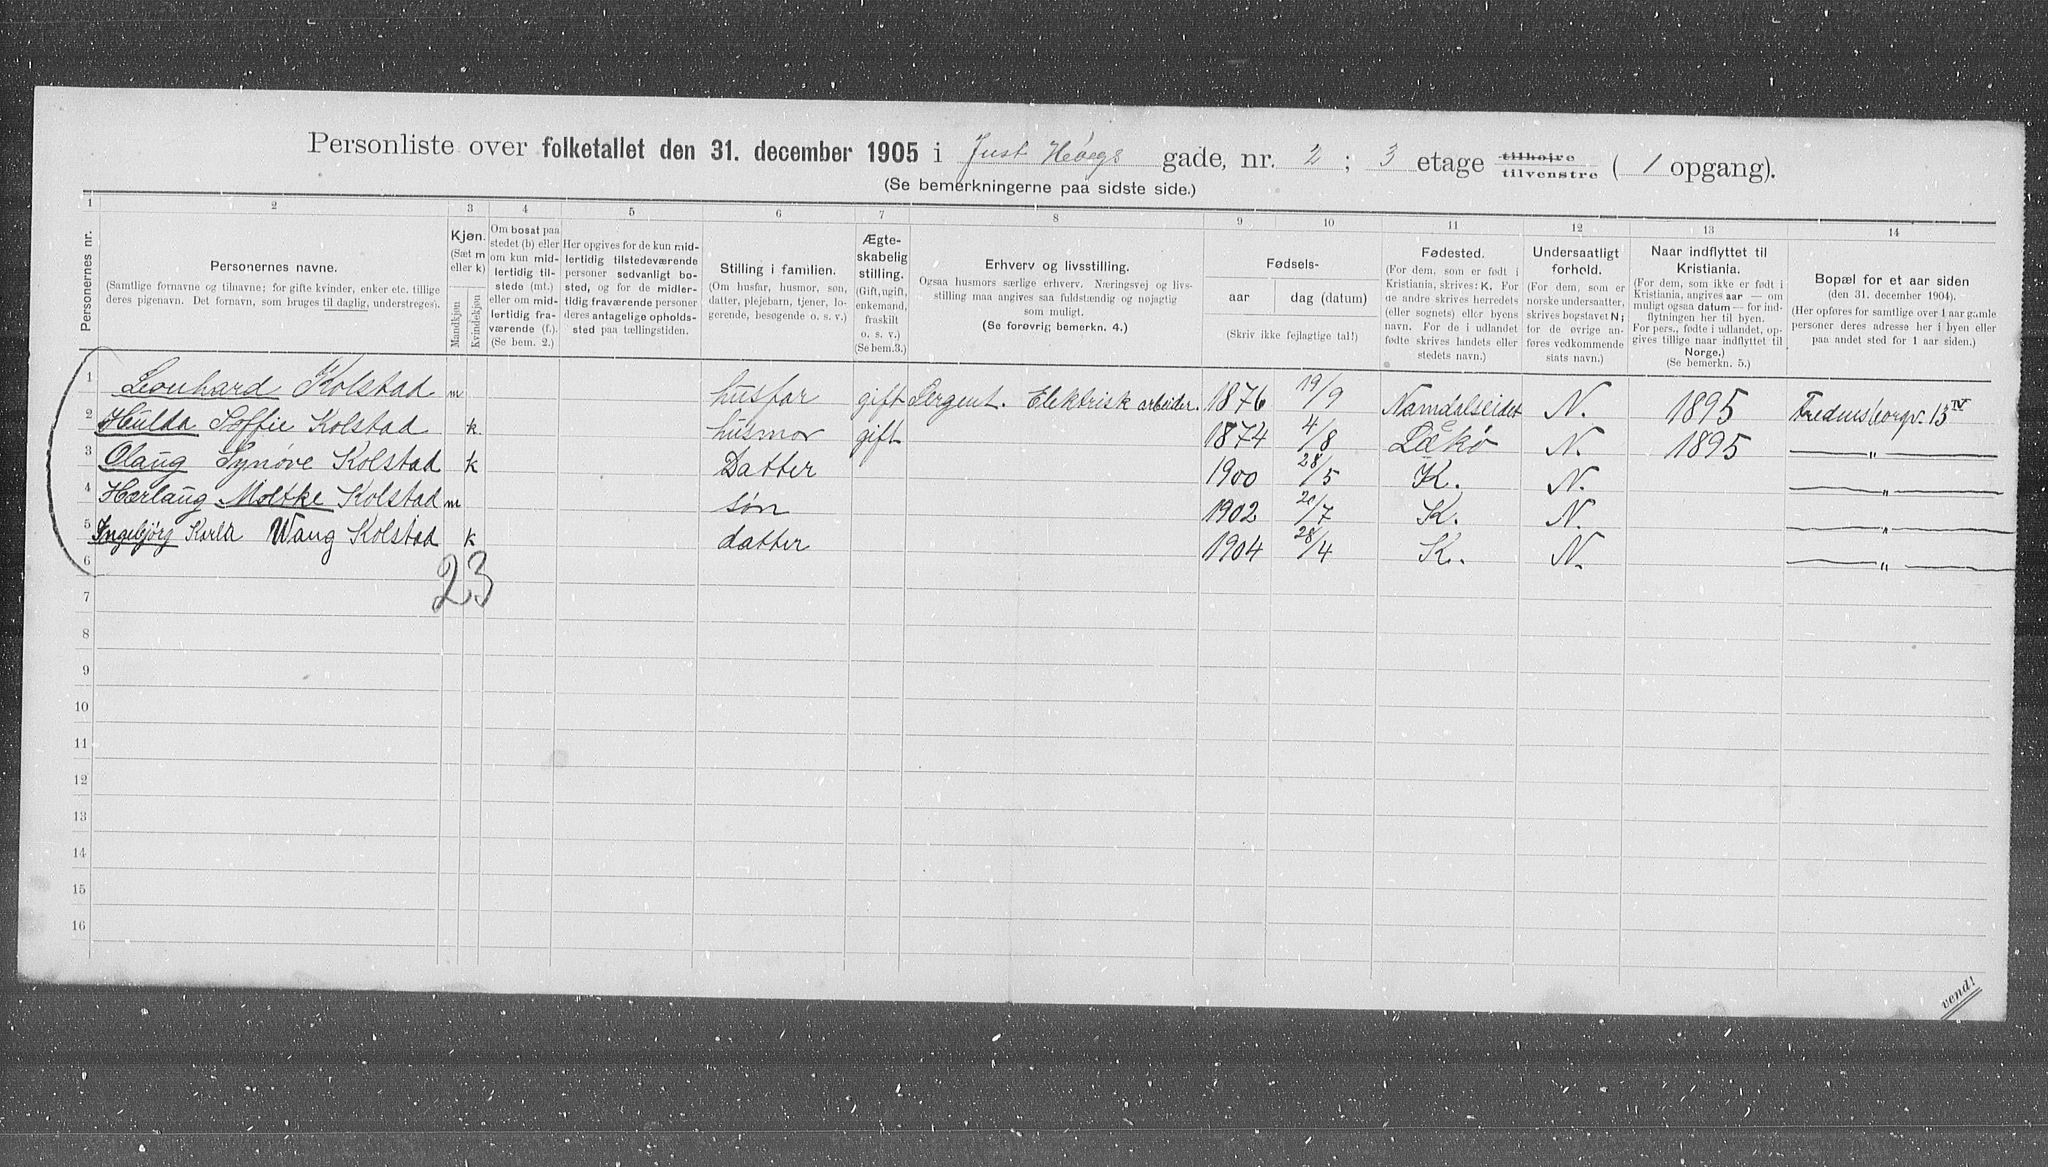 Personliste over folketallet den 31. december 1905 i Just Høegs gade, nr. 2; 3 etage tilhøire tilvenstre (1 opgang).
(Se bemerkningerne paa sidste side.)
1 2 3 4 5 6 7 8 9 10 11 12 13 14
Personernes nr.
Personernes navne.
(Samtlige fornavne og tilnavne; for gifte kvinder, enker etc. tillige
deres pigenavn. Det fornavn, som bruges til daglig, understreges).
Kjøn.
(Sæt m
eller k)
Mandkjøn
Kvindekjøn
Om bosat paa
stedet (b) eller
om kun mid-
lertidig til-
stede (mt.)
eller om mid-
lertidig fra-
værende (f.).
(Se bem. 2.)
Her opgives for de kun mid-
lertidig tilstedeværende
personer sedvanligt bo-
sted, og for de midler-
tidig fraværende personer
deres antagelige opholds-
sted paa tællingstiden.
Stilling i familien.
(Om husfar, husmor, søn,
datter, plejebarn, tjener, lo-
gerende, besøgende o. s. v.)
Ægte-
skabelig
stilling.
(Gift, ugift,
enkemand,
fraskilt
o. s. v.)
(Se bem. 3.)
Erhverv og livsstilling.
Ogsaa husmors særlige erhverv. Næringsvej og livs-
stilling maa angives saa fuldstændig og nøjagtig
som muligt.
(Se forøvrig bemerkn. 4.)
Fødsels-
aar dag (datum)
(Skriv ikke fejlagtige tal!)
Fødested.
(For dem, som er født i
Kristiania, skrives: K. For
de andre skrives herredets
(eller sognets) eller byens
navn. For de i udlandet
fødte skrives landets eller
stedets navn.)
Undersaatligt
forhold.
(For dem, som er
norske undersaatter,
skrives bogstavet N;
for de øvrige an-
føres vedkommende
stats navn.)
Naar indflyttet til
Kristiania.
(For dem, som ikke er født i
Kristiania, angives aar — om
muligt ogsaa datum — for ind-
flytningen her til byen.
For pers., fødte i udlandet, op-
gives tillige naar indflyttet til
Norge.)
(Se bemerkn. 5.)
Bopæl for et aar siden
(den 31. december 1904).
(Her opføres for samtlige over 1 aar gamle
personer deres adresse her i byen eller
paa andet sted for 1 aar siden.)
1 Leonhard Kolstad m husfar gift Sergent. Elektrisk arbeider. 1876 19/9 Namdalseidet N. 1895 Fredensborgv. 15 IV
2 Hulda Soffie Kolstad k. husmor gift 1874 4/8 Lekø N. 1895 — „ —
3 Olaug Synøve Kolstad k Datter 1900 28/5 K. N. — „ —
4 Herlaug Moltke Kolstad m søn 1902 20/7 K. N. — „ —
5 Ingebjørg Karla Wang Kolstad k datter 1904 28/4 K. N. — „ —
6
23
7
8
9
10
11
12
13
14
15
16
vend!